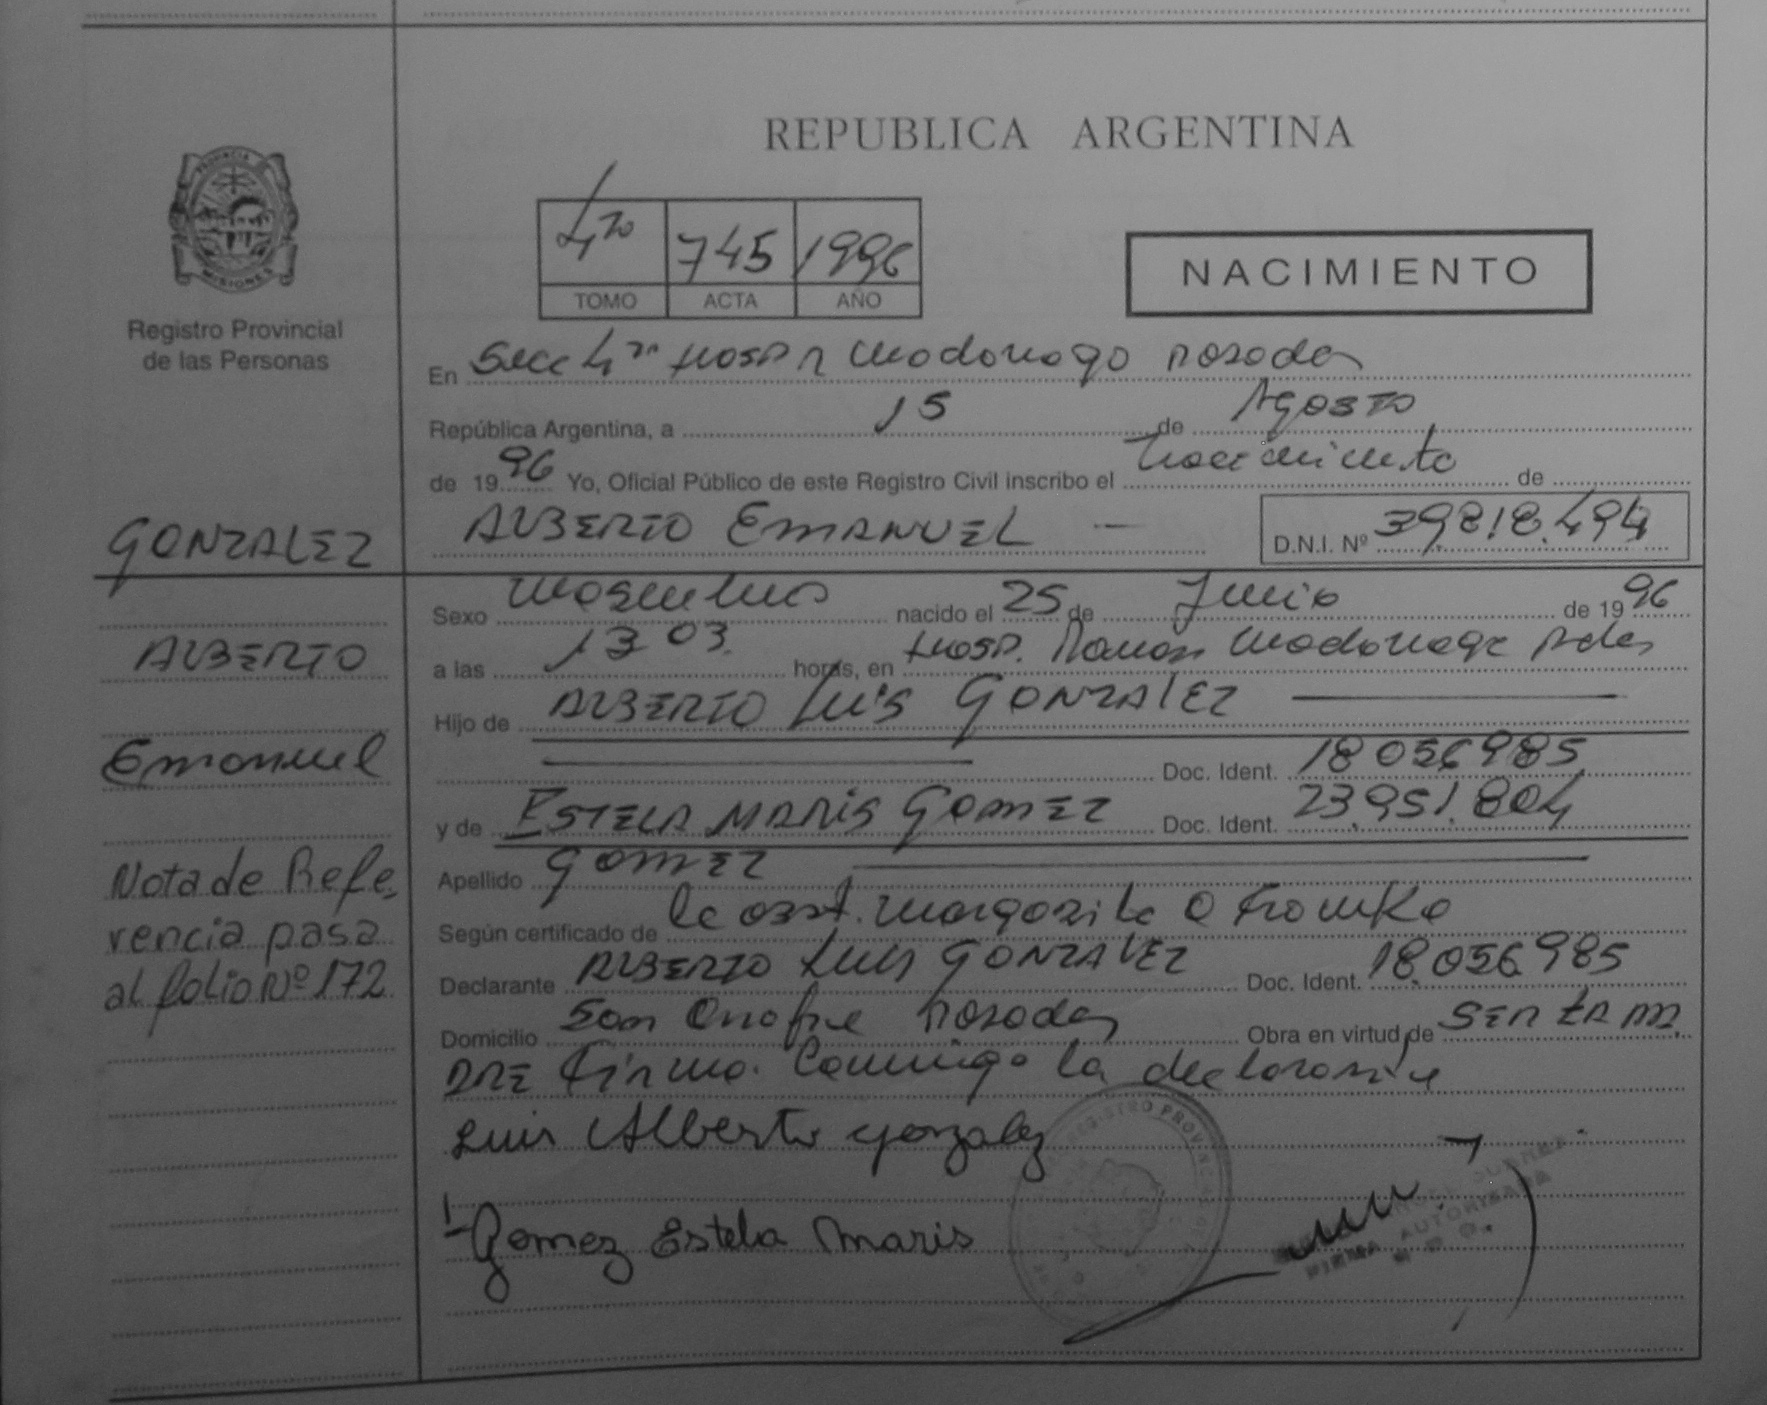 REPUBLICA ARGENTINA
PROVINCIA
MISIONES
Registro Provincial
de las Personas
4to 745 1996
TOMO ACTA AÑO
NACIMIENTO
En Secc 4ta Hosp R Madariaga Posadas
República Argentina, a 15 de Agosto
de 1996 Yo, Oficial Público de este Registro Civil inscribo el Nacimiento de
ALBERTO EMANUEL — D.N.I. Nº 39.818.494
Sexo Masculino nacido el 25 de Junio de 1996
a las 13 03. horas, en Hosp. Ramon Madariaga Pdas
Hijo de ALBERTO LUIS GONZALEZ
Doc. Ident. 18 056 985
y de ESTELA MARIS GOMEZ Doc. Ident. 23.951.804
Apellido GOMEZ
Según certificado de la obst. Margarita
Declarante ALBERTO LUIS GONZALEZ Doc. Ident. 18.056.985
Domicilio San Onofre Posadas Obra en virtud de SER
Firma. Conmigo la declarante
Luis Alberto Gonzalez
Gomez Estela Maris
REGISTRO PROVINCIAL
FIRMA AUTORIZADA
GONZALEZ
ALBERTO
Emanuel
Nota de Refe-
rencia pasa
al folio Nº 172